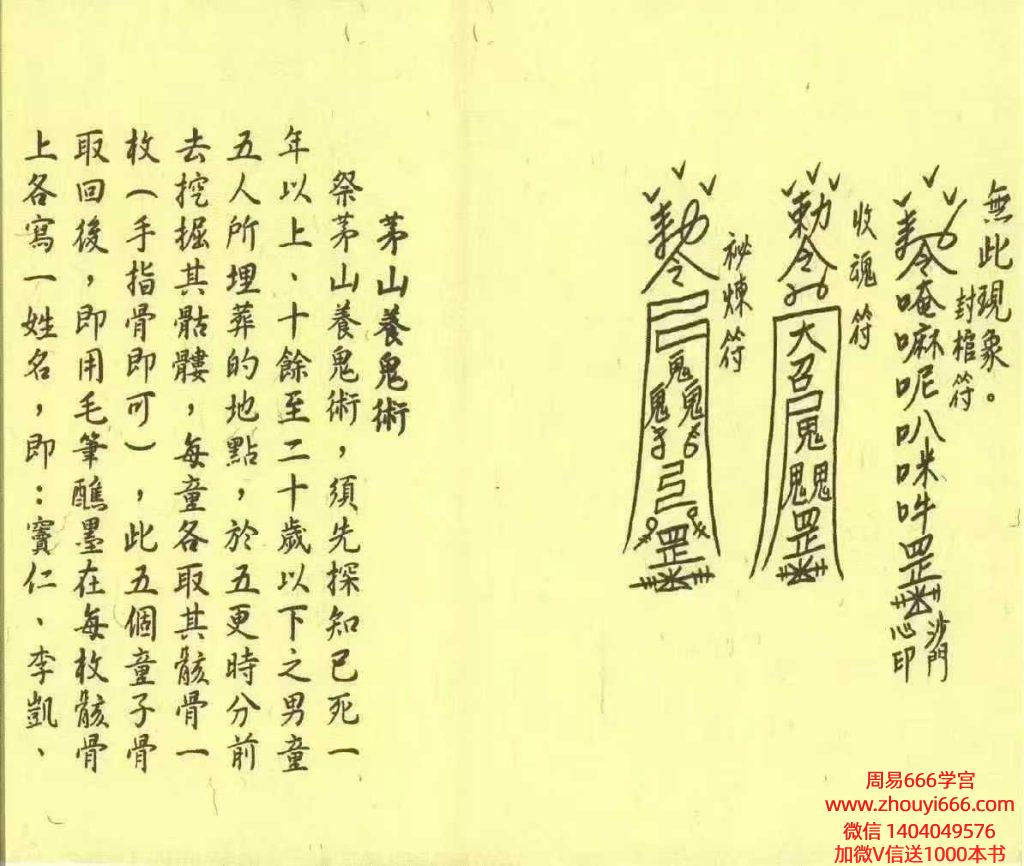 無此現象。
封棺符
勅令唵嘛呢叭咪吽罡
沙門
心印
收魂符
勅令
大召
鬼
鬼鬼
罡
祕煉符
勅令
鬼
鬼鬼
罡
茅山養鬼術
祭茅山養鬼術，須先探知已死一
年以上、十餘至二十歲以下之男童
五人所埋葬的地點，於五更時分前
去挖掘其骷髏，每童各取其骸骨一
枚（手指骨即可），此五個童子骨
取回後，即用毛筆醮墨在每枚骸骨
上各寫一姓名，即：竇仁、李凱、
周易666学宫
www.zhouyi666.com
微信 1404049576
加微V信送1000本书